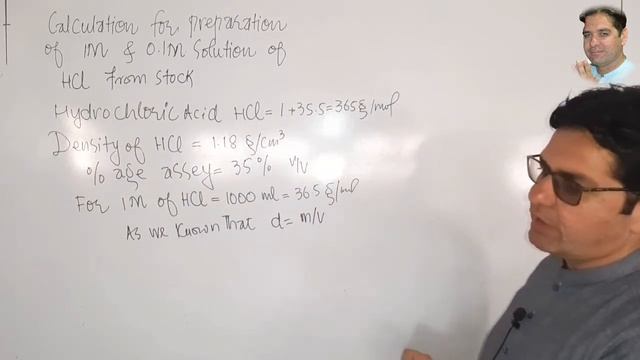 Calculation for preparation
of 1M & 0.1M Solution of
HCl from stock
Hydrochloric Acid HCl = 1+35.5=365g/mol
Density of HCl = 1.18 g/cm³
% age assey = 35% v/v
For 1M of HCl = 1000 ml = 36.5 g/ml
As we known that d= m/v